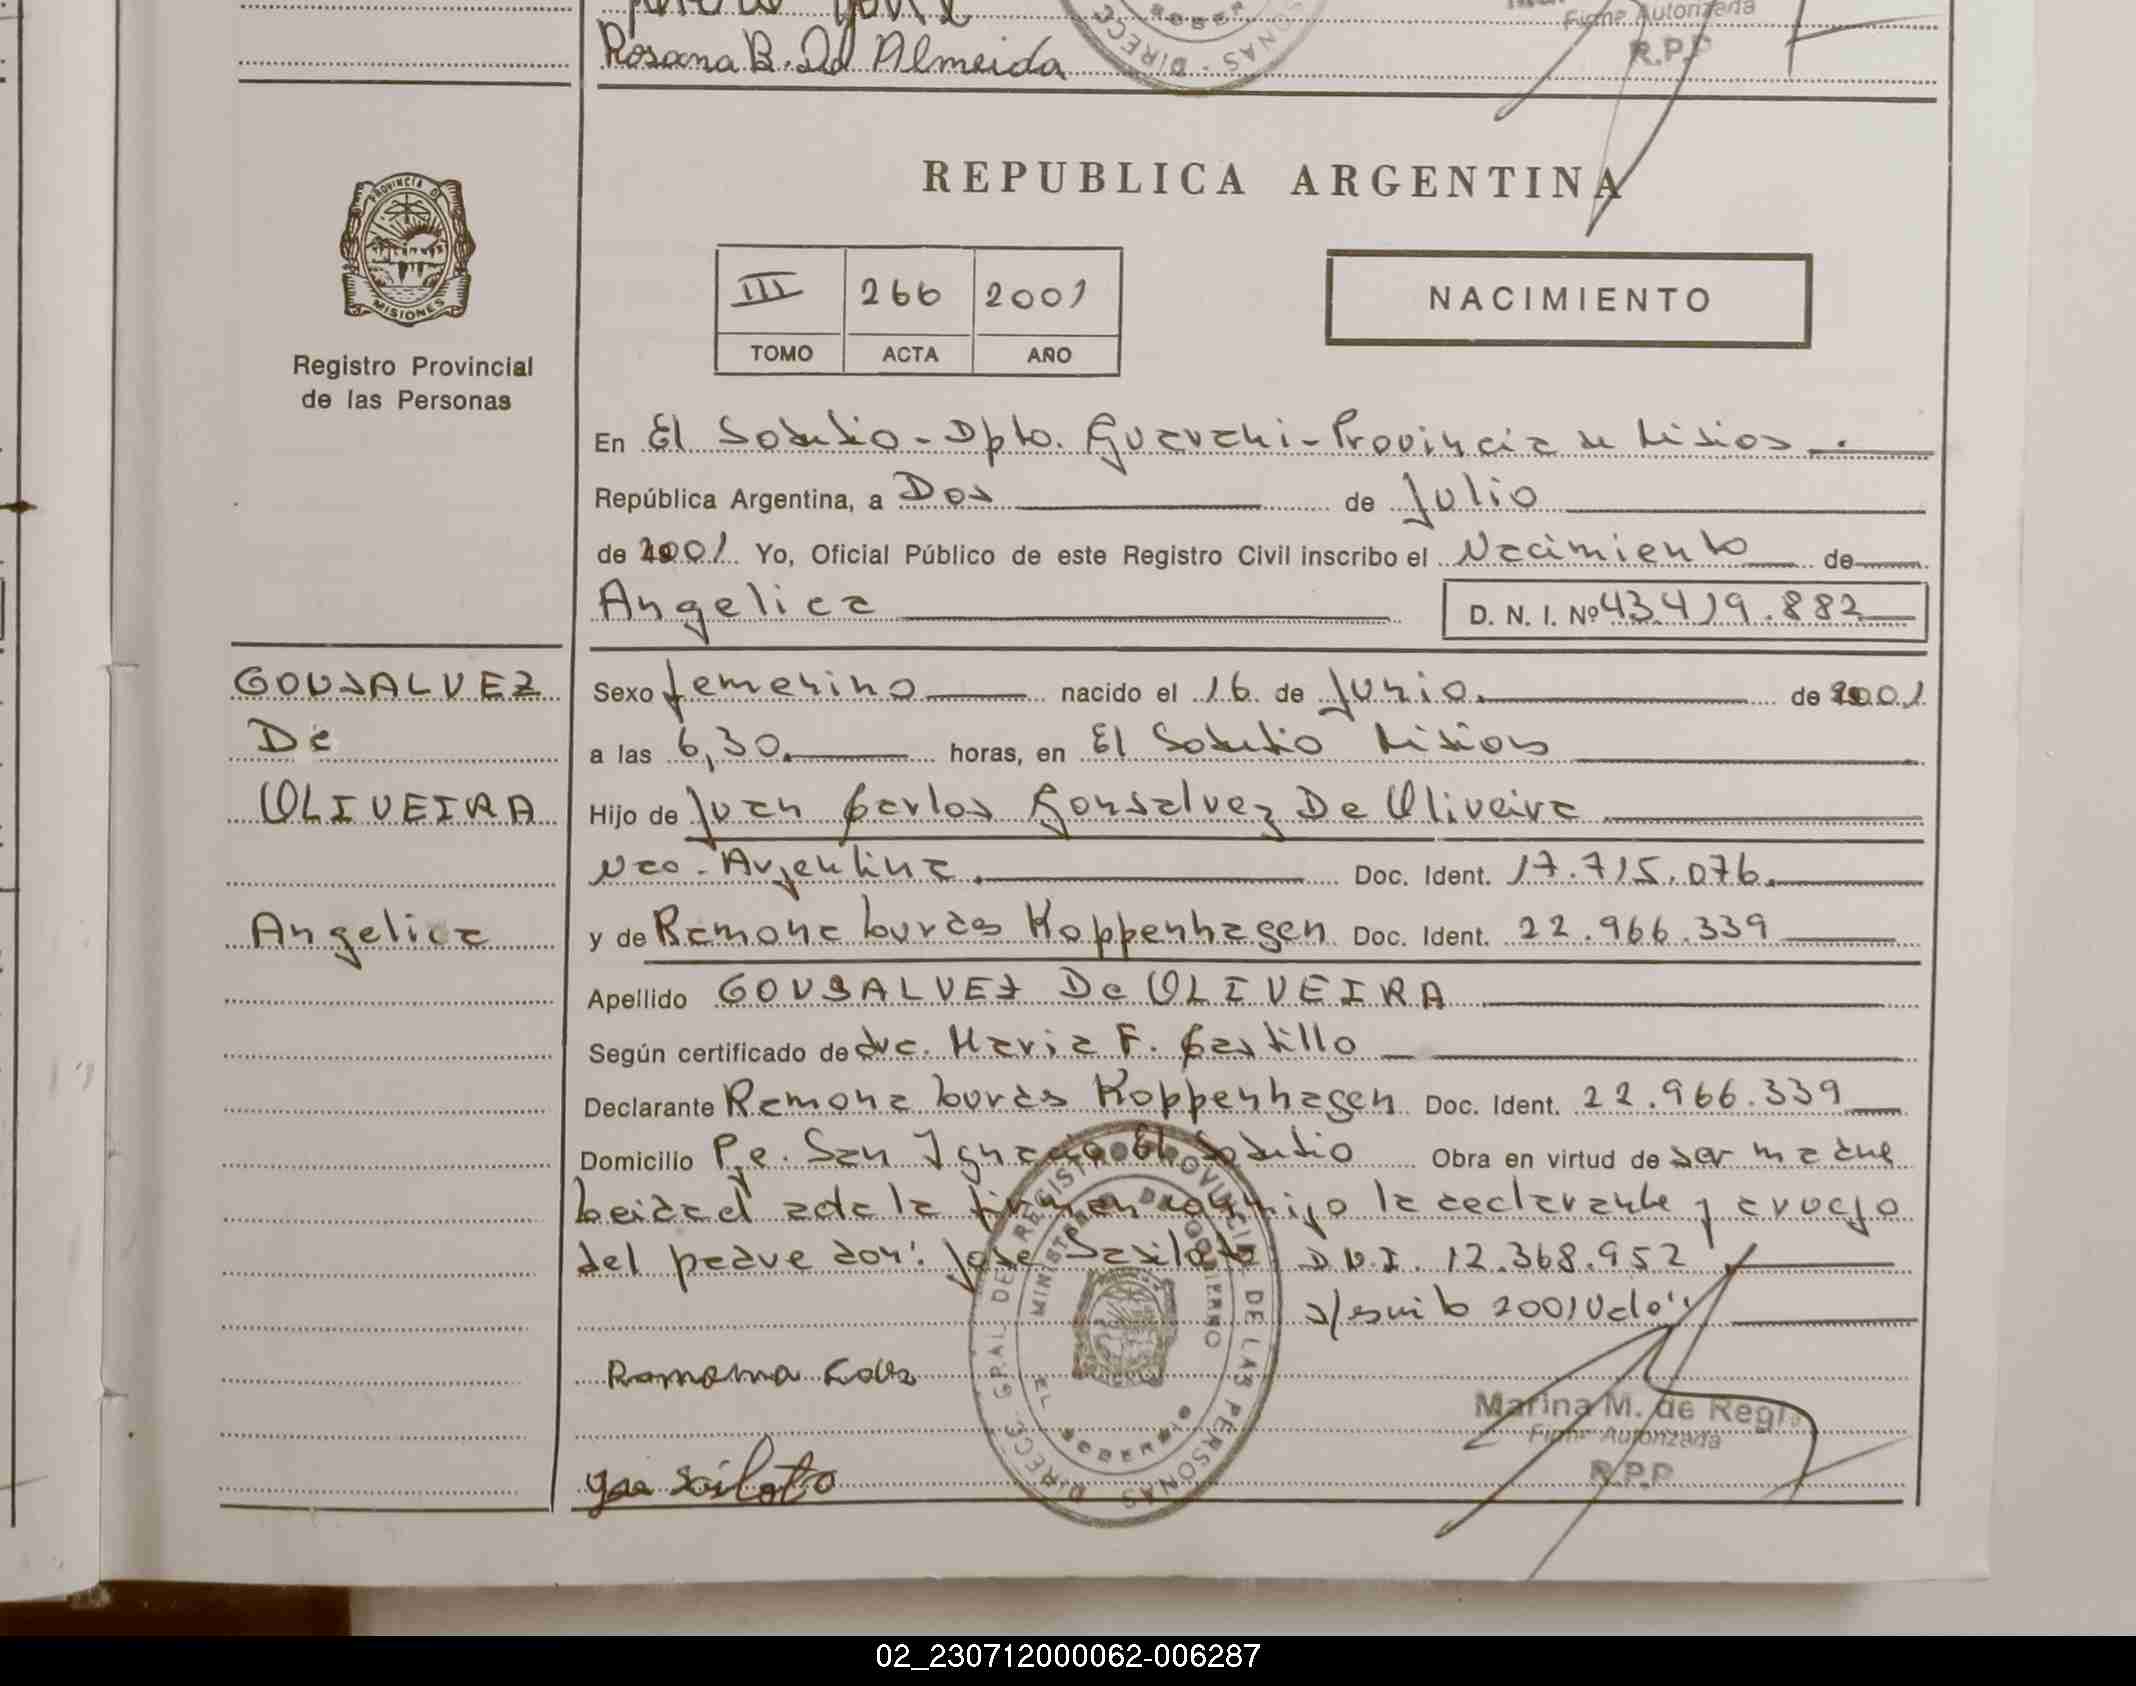 Rosana B. Dd Almeida
Firma Autorizada
R.P.P
REPUBLICA ARGENTINA
PROVINCIA DE
MISIONES
Registro Provincial
de las Personas
III 266 2001
TOMO ACTA AÑO
NACIMIENTO
En El Soberbio - Dpto. Guarani - Provincia de Misiones.
República Argentina, a Dos de Julio
de 2001 Yo, Oficial Público de este Registro Civil inscribo el Nacimiento de
Angelica D. N. I. Nº 43.419.882
GONSALVEZ
De
OLIVEIRA
Angelica
Sexo femenino nacido el 16 de Junio de 2001
a las 6,30 horas, en El Soberbio Misiones
Hijo de Juan Carlos Gonsalvez De Oliveira
Nac. Argentina. Doc. Ident. 17.715.076.
y de Ramona Lurdes Koppenhagen Doc. Ident. 22.966.339
Apellido GONSALVEZ De OLIVEIRA
Según certificado de dra. Maria F. Castillo
Declarante Ramona Lurdes Koppenhagen Doc. Ident. 22.966.339
Domicilio Pje. San Ignacio El Soberbio Obra en virtud de ser madre
Leida el acta la firman conmigo la declarante y a ruego
del padre don: Jose D.N.I. 12.368.952
s/escrito 2001 Vale
Ramona
DIRECC. GRAL. DEL REGISTRO PROVINCIAL DE LAS PERSONAS
MINISTERIO DE GOBIERNO
EL SOBERBIO
Marina M. de Regis
Firma Autorizada
R.P.P
02_230712000062-006287